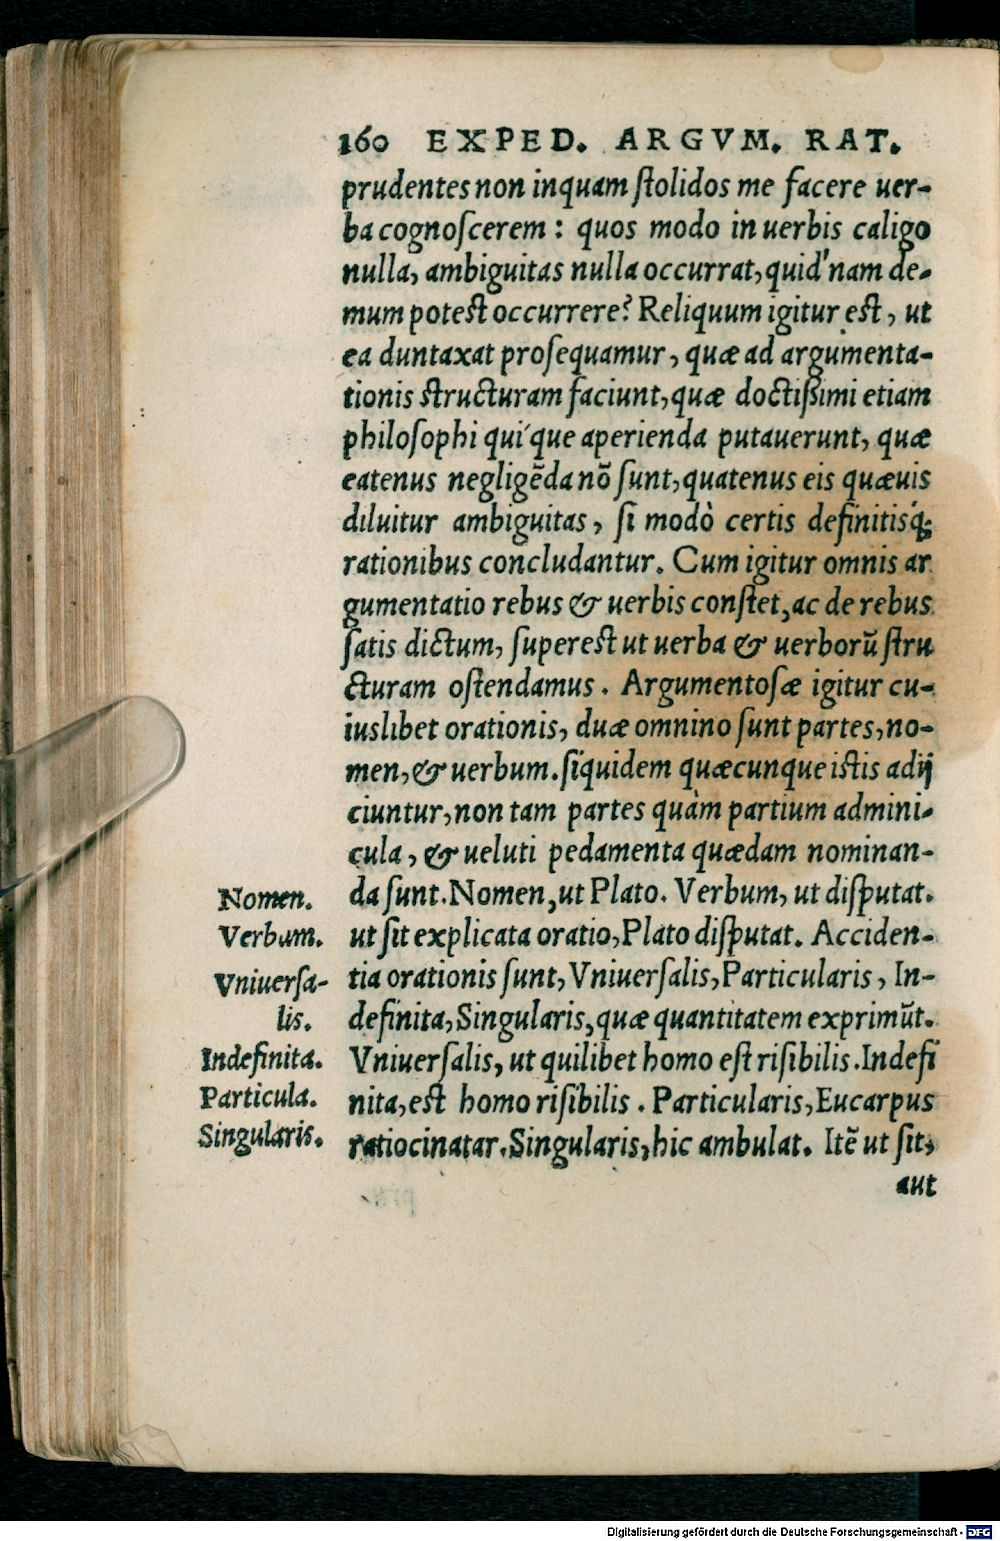 160 EXPED. ARGVM. RAT.
prudentes non inquam ſtolidos me facere uer-
ba cognoſcerem : quos modo in uerbis caligo
nulla, ambiguitas nulla occurrat, quid'nam de-
mum poteſt occurrere? Reliquum igitur eſt, ut
ea duntaxat proſequamur, quæ ad argumenta-
tionis ſtructuram faciunt, quæ doctiſsimi etiam
philoſophi qui'que aperienda putauerunt, quæ
eatenus negligēda nō ſunt, quatenus eis quæuis
diluitur ambiguitas, ſi modò certis definitisq́;
rationibus concludantur. Cum igitur omnis ar
gumentatio rebus & uerbis conſtet, ac de rebus
ſatis dictum, ſupereſt ut uerba & uerborū ſtru
cturam oſtendamus. Argumentoſæ igitur cu-
iuslibet orationis, duæ omnino ſunt partes, no-
men, & uerbum. ſiquidem quæcunque iſtis adij
ciuntur, non tam partes quàm partium admini-
cula, & ueluti pedamenta quædam nominan-
da ſunt. Nomen, ut Plato. Verbum, ut diſputat.
ut ſit explicata oratio, Plato diſputat. Acciden-
tia orationis ſunt, Vniuerſalis, Particularis, In-
definita, Singularis, quæ quantitatem exprimūt.
Vniuerſalis, ut quilibet homo eſt riſibilis. Indefi
nita, eſt homo riſibilis. Particularis, Eucarpus
ratiocinatar. Singularis, hic ambulat. Itē ut ſit,
aut
Nomen.
Verbum.
Vniuerſa-
lis.
Indefinita.
Particula.
Singularis.
Digitalisierung gefördert durch die Deutsche Forschungsgemeinschaft - DFG